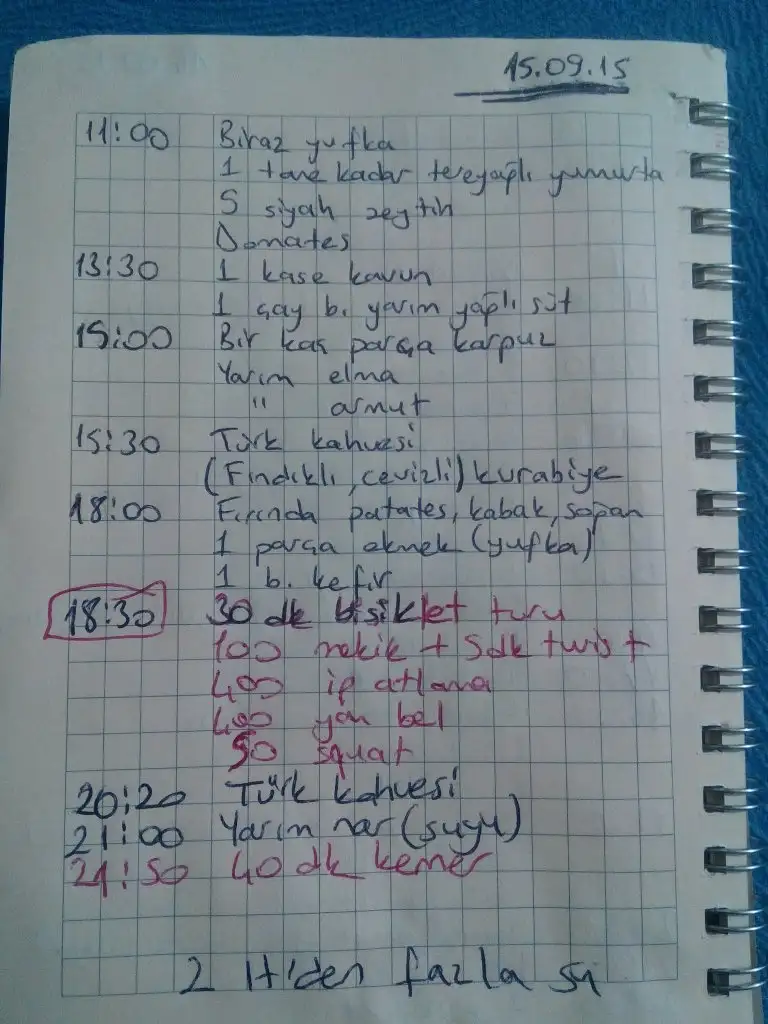 15.09.15
11:00 Biraz yufka
1 tane kadar tereyağlı yumurta
5 siyah zeytin
Domates
13:30 1 kase kavun
1 çay b. yarım yağlı süt
15:00 Bir kaç parça karpuz
Yarım elma
" armut
15:30 Türk kahvesi
(Fındıklı, cevizli) kurabiye
18:00 Fırında patates, kabak, soğan
1 parça ekmek (yufka)
1 b. kefir
18:30 30 dk bisiklet turu
100 mekik + 5dk twist
400 ip atlama
400 yan bel
50 squat
20:20 Türk kahvesi
21:00 Yarım nar (suyu)
21:50 40 dk kemer
2 lt'den fazla su